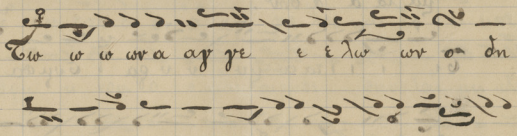 Των ω ω ων α αγ γε ε ε λω ων ο δη